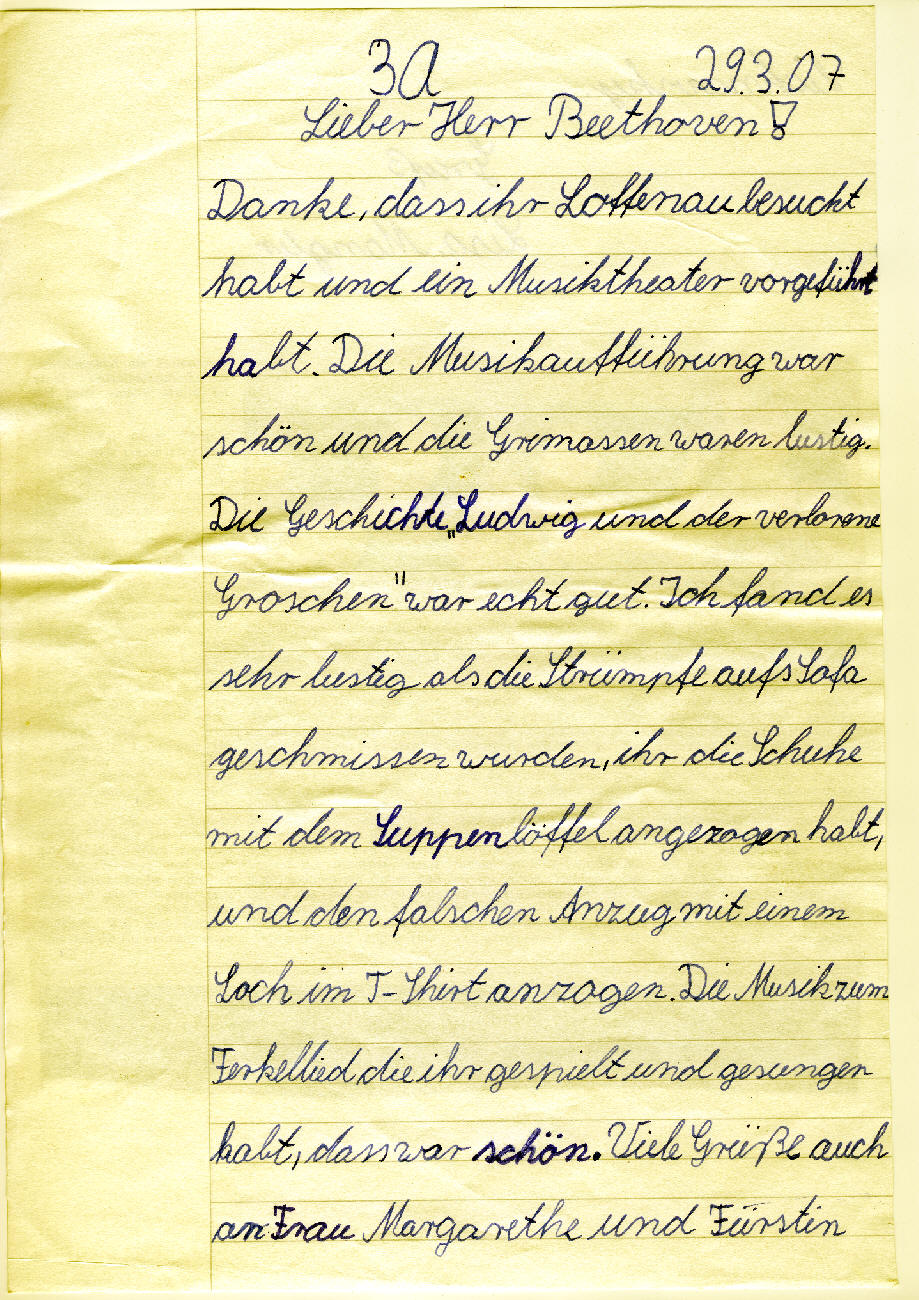 3a 29.3.07
Lieber Herr Beethoven!
Danke, dass ihr Loffenau besucht
habt und ein Musiktheater vorgeführt
habt. Die Musikaufführung war
schön und die Grimassen waren lustig.
Die Geschichte „Ludwig und der verlorene
Groschen" war echt gut. Ich fand es
sehr lustig als die Strümpfe aufs Sofa
geschmissen wurden, ihr die Schuhe
mit dem Suppenlöffel angezogen habt,
und den falschen Anzug mit einem
Loch im T-Shirt anzogen. Die Musik zum
Ferkellied die ihr gespielt und gesungen
habt, dass war schön. Viele Grüße auch
an Frau Margarethe und Fürstin